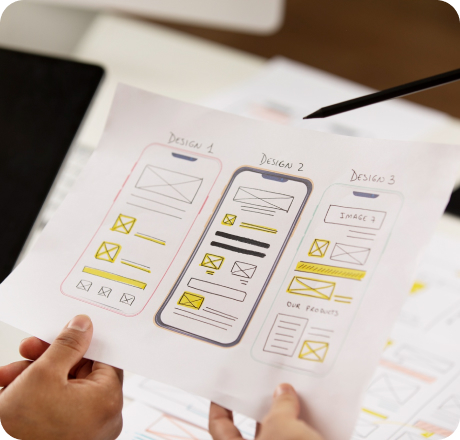 DESIGN 1
DESIGN 2
DESIGN 3
IMAGE 2
OUR PRODUCTS